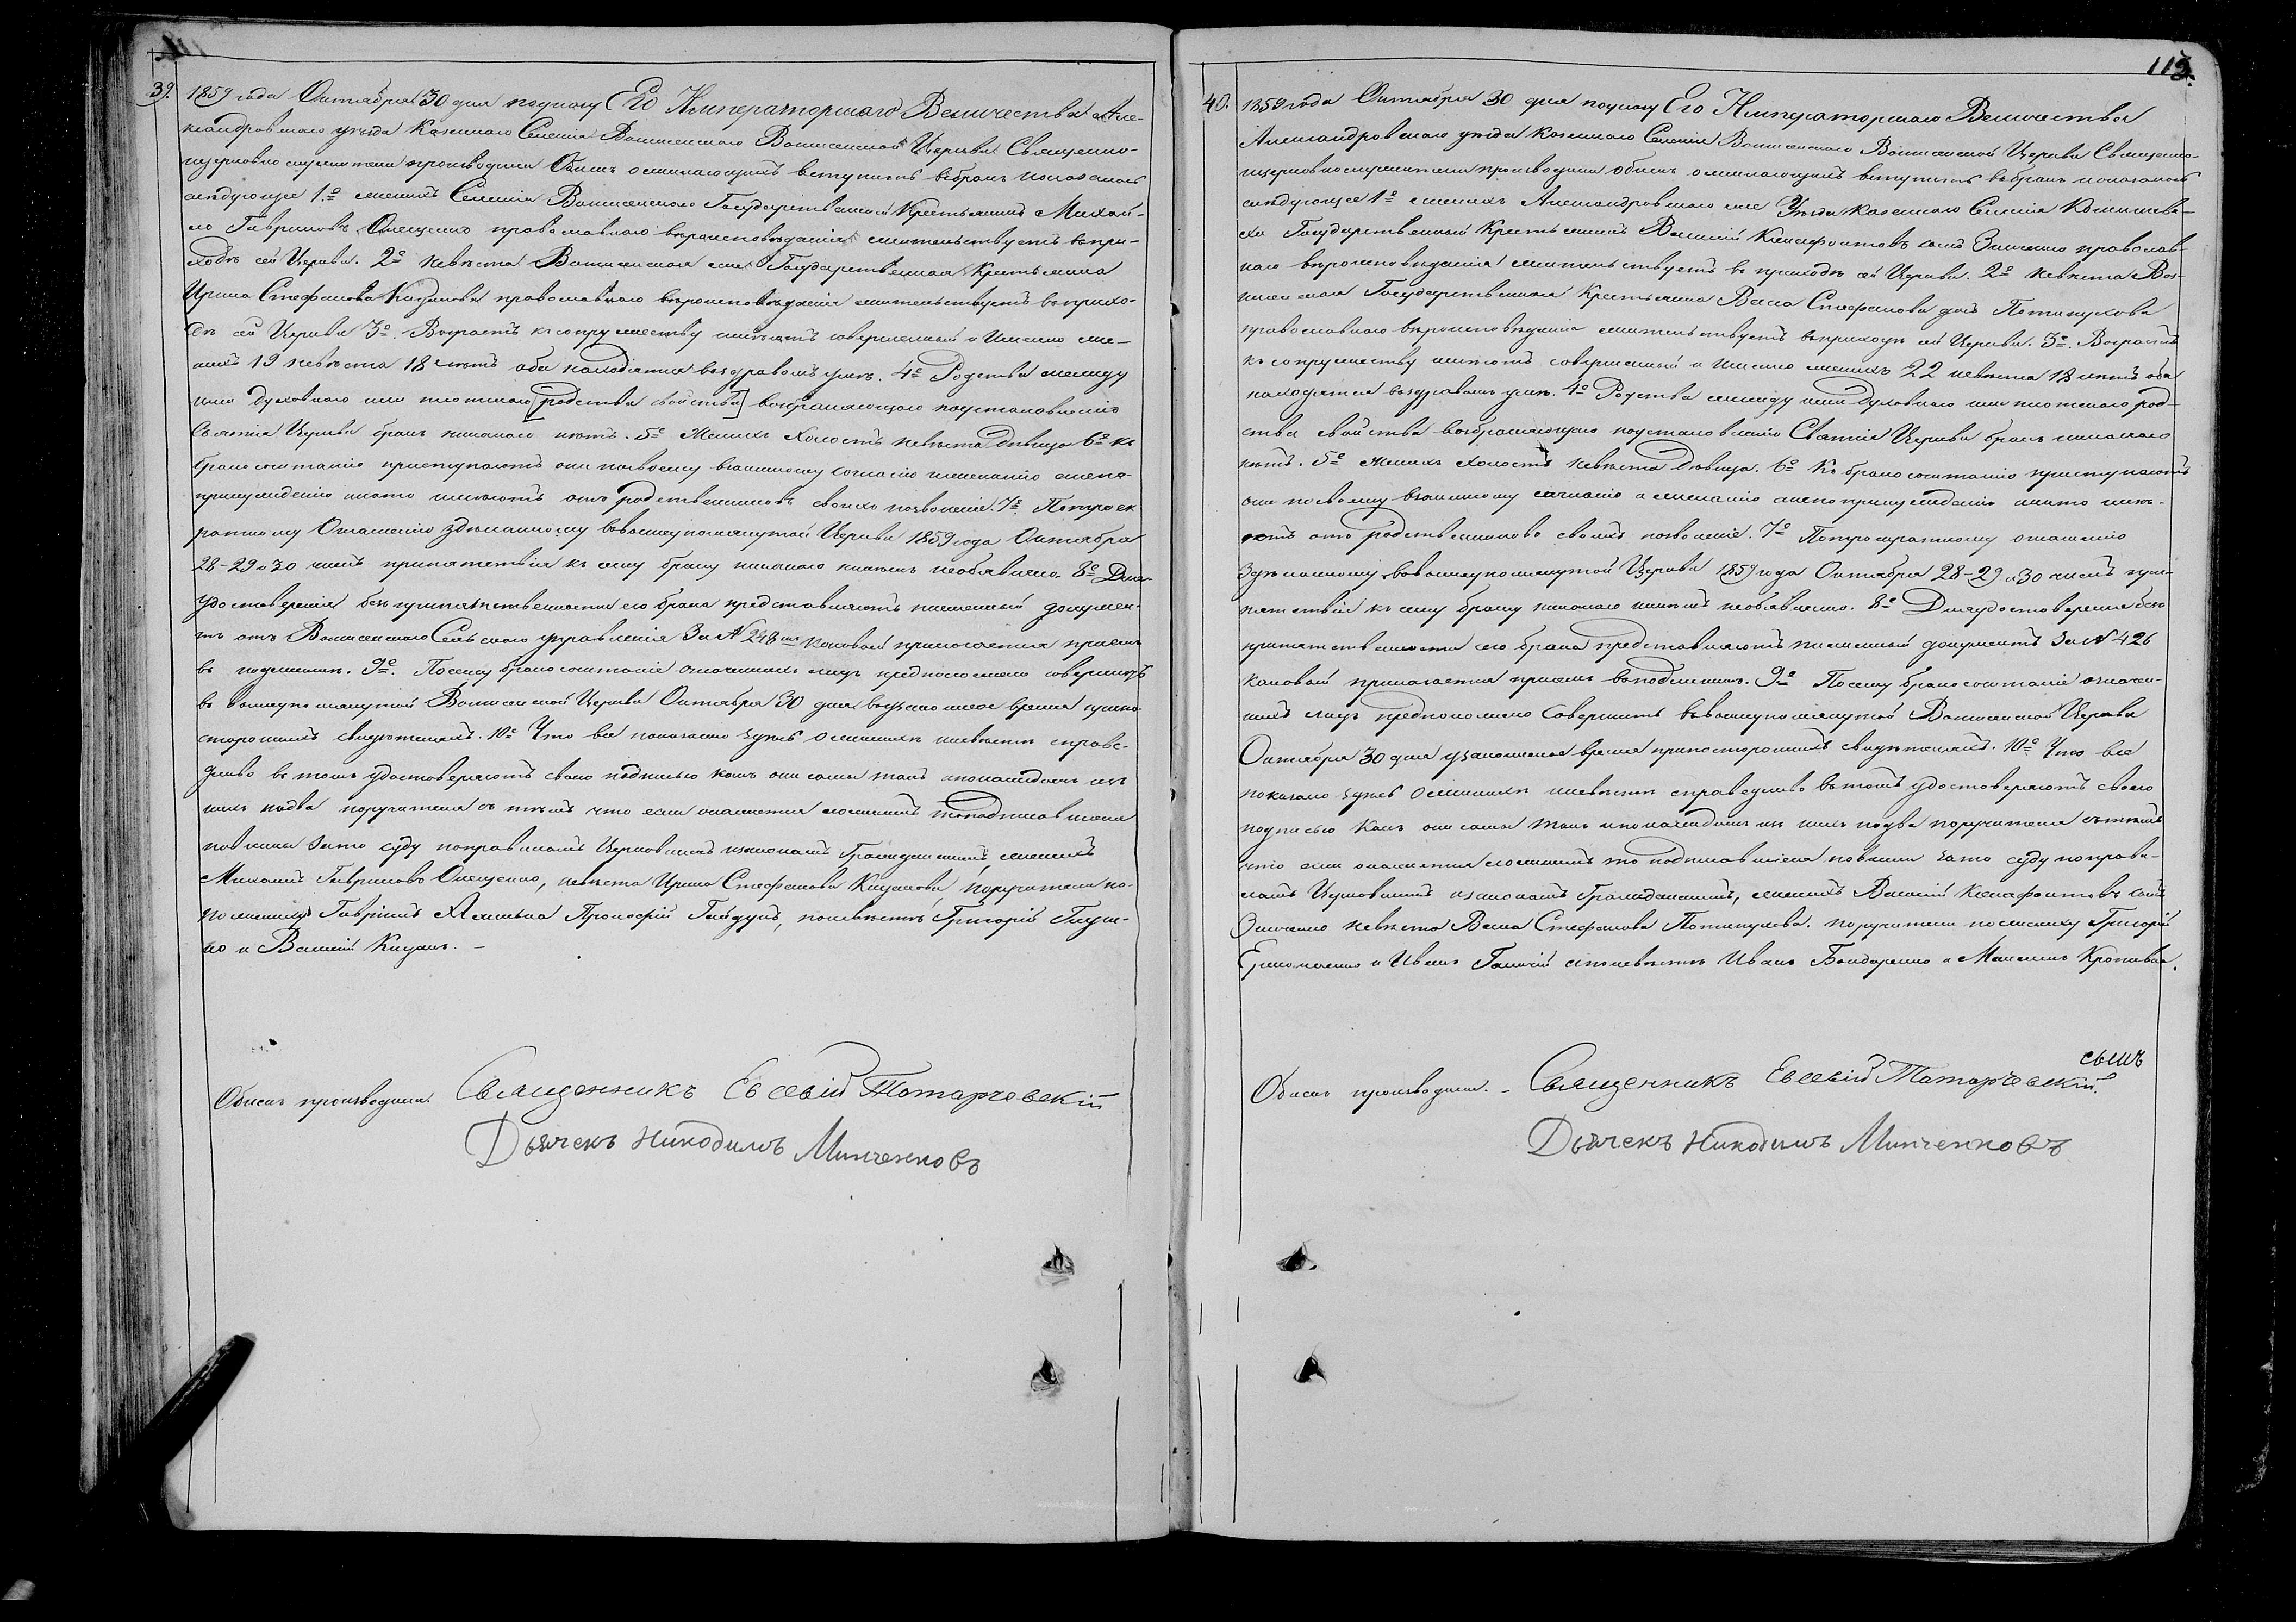 39.
1859 года Октября 30 дня по указу Его Императорскаго Величества Але-
ксандровскаго уезда Казеннаго Селенія Вознесенскаго Вознесенской Церкви Священно-
церковно служители производили Обыскъ о желающихъ вступить въ бракъ и показалось
следующее 1е. женихъ Селенія Вознесенскаго Государственной Крестьянинъ Михаи-
ло Гавриловъ Онещенко православнаго вероисповеданія жительствуетъ въ при-
ходе сей Церкви. 2е невеста Вознесенская же Государственная Крестьянка
Ирина Стефанова Кицанова православнаго вероисповеданія жительствуетъ въ прихо-
де сей Церкви 3е. Возрастъ къ сопружеству имеютъ совершенный и Именно же-
нихъ 19 невеста 18 летъ оба находятся въ здравомъ уме. 4е Родства между
ими духовнаго или плотскаго [родства свойства] возбраняющаго по установленію
Святія Церкви бракъ никакого нетъ. 5е Женихъ Холостъ невеста Девица 6е Къ
бракосочетанію приступаютъ они по своему взаимному согласію и желанію а не по
принужденію на то имеютъ отъ родственниковъ своихъ позволеніе. 7е. По троек
ратному Оглашенію зделанному въ вышеупомянутой Церкви 1859 года Октября
28-29 и 30 чиселъ препятствія къ сему браку никакого никемъ необявлено. 8е Для
удостоверенія безпрепятственности сего брака представляютъ письменный докумен-
тъ отъ Вознесенскаго Сельскаго управленія За № 248мъ каковой прилагается при семъ
въ подлиннике. 9е. По сему бракосочетаніе означенныхъ лицъ предположено совершить
въ вышеупомянутой Вознесенской Церкви Октября 30 дня въ узаконенное время при по-
стороннихъ свидетеляхъ. 10е Что все показано здесь о женихе и невесте справе-
дливо въ томъ удостоверяютъ своею подписью какъ они сами такъ и по каждомъ изъ
нихъ по два поручителя съ темъ что если окажется ложнымъ то подписавшіеся
повинны за то суду по правиламъ Церковнымъ и законамъ Гражданскимъ, женихъ
Михаилъ Гавриловъ Онещенко, невеста Ирина Стефанова Кицанова, поручители по
по женихе Гавріилъ Прокофій Гайдукъ, по невесте Григорій
и Василій Кицанъ. -
Обыскъ производили Священникъ Евсевій Татарчевскій
Дьячекъ Никодимъ Минченковъ
113.
40.
1859 года Октября 30 дня по указу Его Императорскаго Величества
Александровскаго уезда Казеннаго Селенія Вознесенскаго Вознесенской Церкви Священно-
церковнослужители производили обыскъ о желающихъ вступить въ бракъ и показалось
следующее 1е женихъ Александровскаго же Уезда Казеннаго Селенія Комышева-
хи Государственный Крестьянинъ Василій Ксенофонтовъ сынъ Зинченко православ-
наго вероисповеданія жительствуетъ въ приходе сей Церкви. 2е невеста Воз-
несенская Государственная Крестьянка Васса Стефанова дочь
православнаго вероисповеданія жительствуетъ въ приходе сей Церкви. 3е. Возрастъ
къ сопружеству имеютъ совершенный и именно женихъ 22 невеста 18 летъ оба
находятся въ здравомъ уме. 4е Родства между ими духовнаго или плотскаго род-
ства свойства возбраняющаго по установленію Святія Церкви бракъ никакого
нетъ. 5е женихъ холостъ невеста Девица. 6е Къ бракосочетанію приступаютъ
они по своему взаимному согласію и желанію а не по принужденію на то име-
ютъ отъ родственниковъ своихъ позволеніе. 7е По троекратному оглашенію
Зделанному въ вышеупомянутой Церкви 1859 года Октября 28-29 и 30 чиселъ пре-
пятствія къ сему браку никакого никемъ необявлено. 8е Для удостоверенія без
препятственности сего брака представляютъ письменный документъ За № 426
каковой прилагается при семъ въ подлиннике. 9е По сему бракосочетаніе означен-
ныхъ лицъ предположено Совершить въ вышеупомянутой Вознесенской Церкви
Октября 30 дня узаконенное время при постороннихъ свидетеляхъ. 10е Что все
показано здесь о женихе и невесте справедливо въ томъ удостоверяютъ своею
подписью какъ они сами такъ и по каждомъ изъ нихъ по два поручителя съ темъ
что если окажется ложнымъ то подписавшіеся повинны за то суду по прави-
ламъ Церковнымъ и законамъ Гражданскимъ, женихъ Василій Ксенофонтовъ сынъ
Зинченко невеста Васса Стефанова поручители по жениху Григорій
Ермоленко и Иванъ а по невесте Иванъ Бондаренко и Максимъ Кропивка.
Обыскъ производили. - Священникъ Евсевій Татарчевскій.
сынъ
Дьячекъ Никодимъ Минченковъ